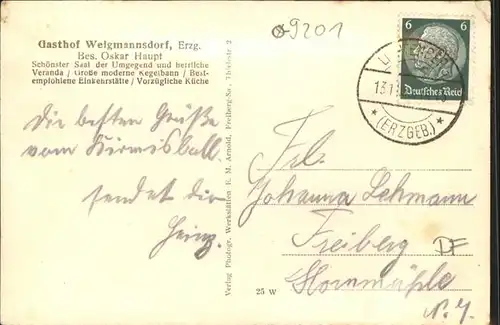 ⌀9201
Gasthof Weigmannsdorf, Erzg.
Bes. Oskar Haupt
Schönster Saal der Umgegend und herrliche
Veranda / Große moderne Kegelbahn / Best-
empfohlene Einkehrstätte / Vorzügliche Küche
Die besten Grüße
vom Kirmesball
sendet dir
Heinz.
Verlag Photogr. Werkstätten E. M. Arnold, Freiberg-Sa., Thielestr. 2
25 W
6 6
Deutsches Reich
13.1
(ERZGEB.)
Frl.
Johanna Lehmann
Freiberg
DF
Hornmühle
N. 7.